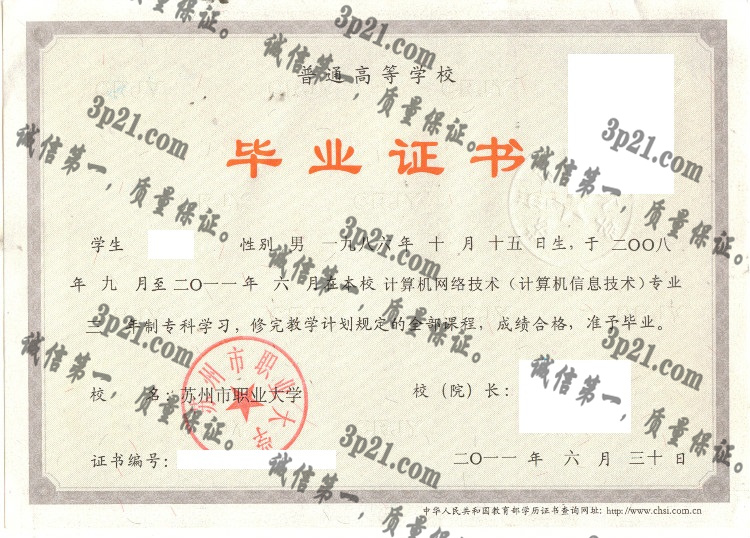 普通高等学校
毕业证书
学生 性别 男 一九八六年 十 月 十五 日生, 于 二〇〇八
年 九 月至 二〇一一年 六 月在本校 计算机网络技术（计算机信息技术）专业
三 年制专科学习, 修完教学计划规定的全部课程, 成绩合格, 准予毕业。
校 名: 苏州市职业大学
校（院）长:
苏州市职业大学
证书编号:
二〇一一 年 六 月 三十 日
中华人民共和国教育部学历证书查询网址: http://www.chsi.com.cn
3p21.com
诚信第一, 质量保证。
3p21.com
诚信第一, 质量保证。
3p21.com
诚信第一, 质量保证。
3p21.com
诚信第一, 质量保证。
3p21.com
诚信第一, 质量保证。
3p21.com
诚信第一, 质量保证。
3p21.com
诚信第一, 质量保证。
3p21.com
诚信第一, 质量保证。